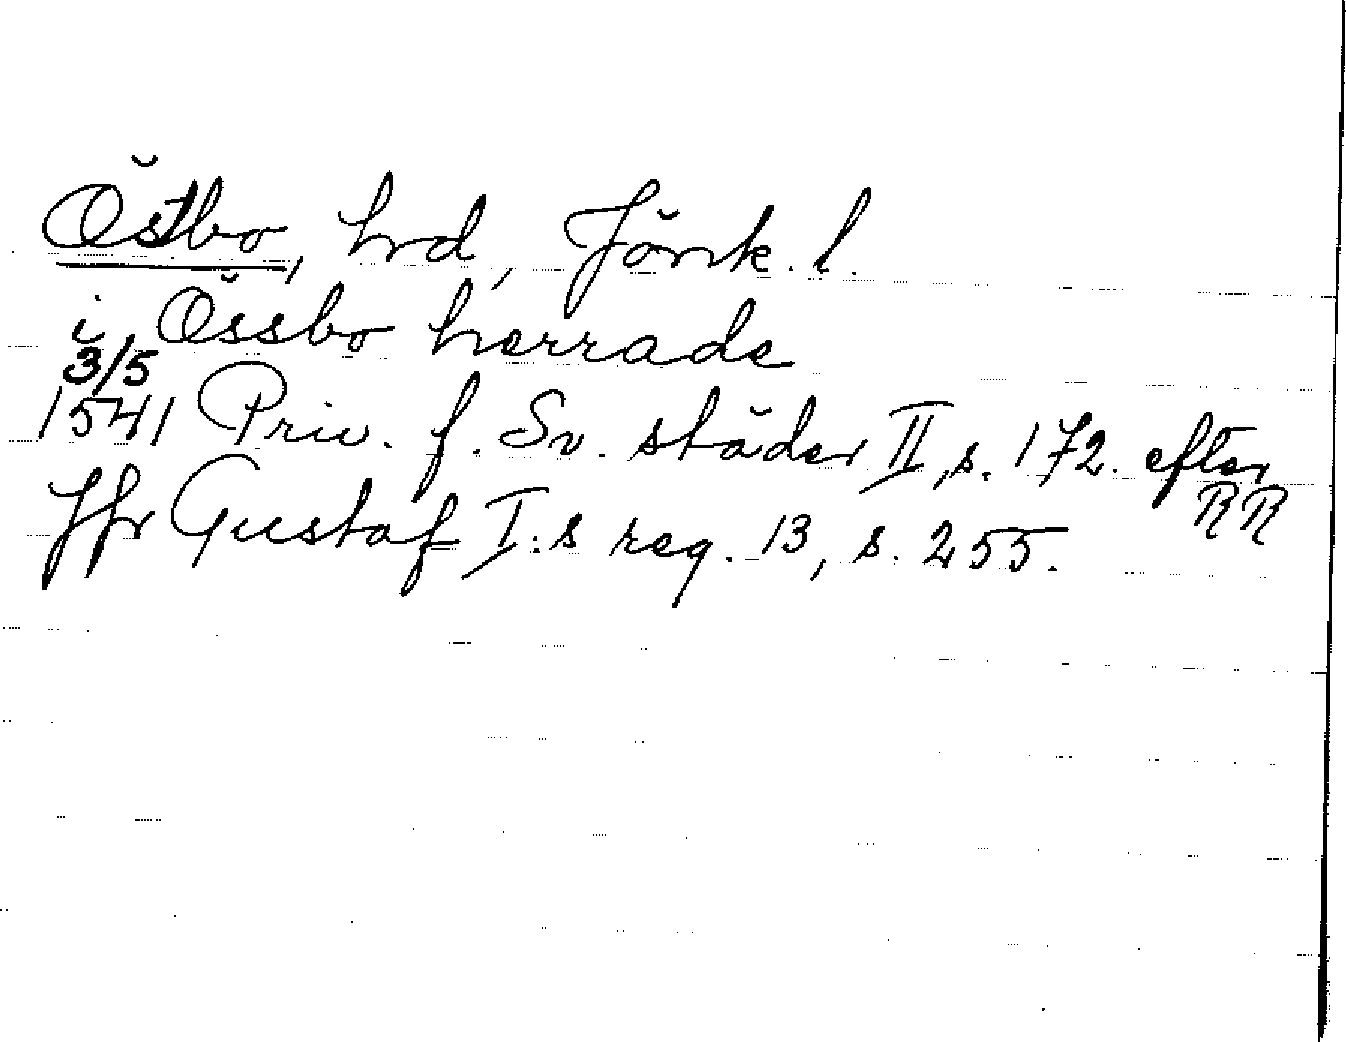 Östbo, hrd, Jönk. l.
i Össbo herrade
3/5
1541 Priv. f. Sv. städer II, s. 172. efter
RR
Jfr Gustaf I:s reg. 13, s. 255.